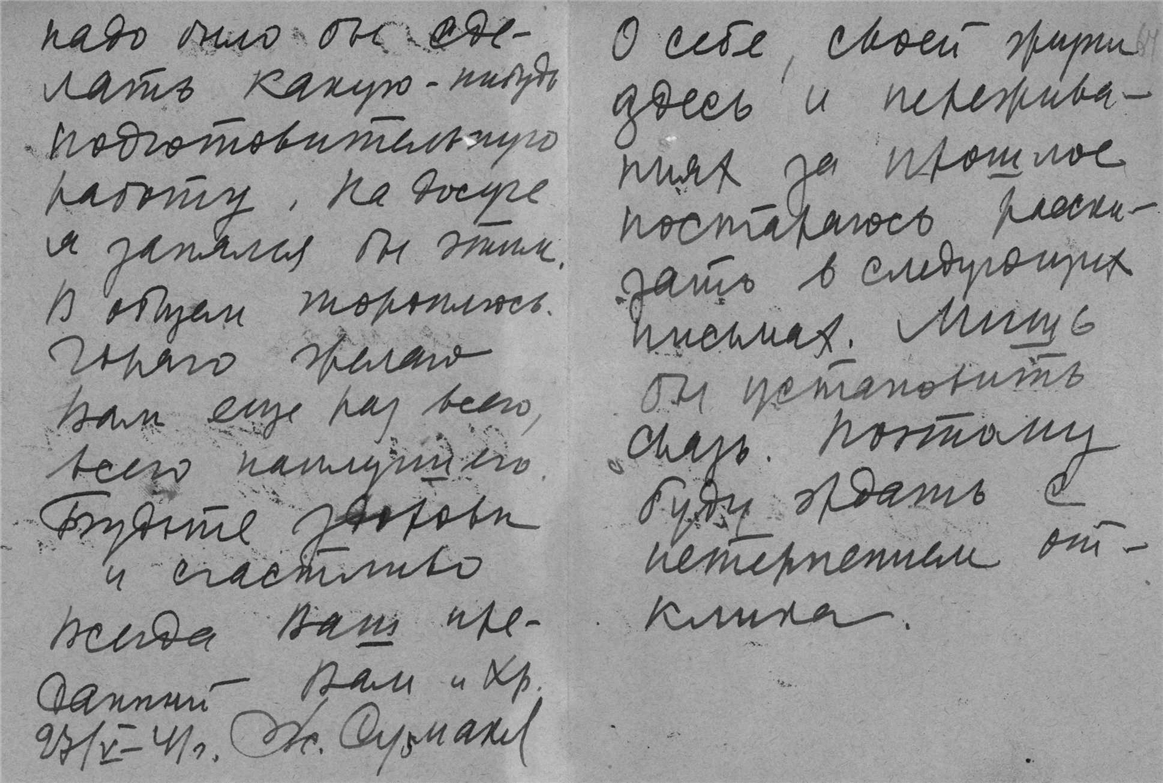 надо было бы сде-
лать какую-нибудь
подготовительную
работу. На досуге
я занялся бы этим.
В общем тороплюсь.
Горячо желаю
Вам еще раз всего,
всего наилучшего.
Будьте здоровы
и счастливо
Всегда Ваш пре-
данный Вам и Хр.
27/V-41г.
О себе, своей жизни
здесь и пережива-
ниях за прошлое
постараюсь расска-
зать в следующих
письмах. Лишь
бы установить
связь. Поэтому
буду ждать с
нетерпением от-
клика.